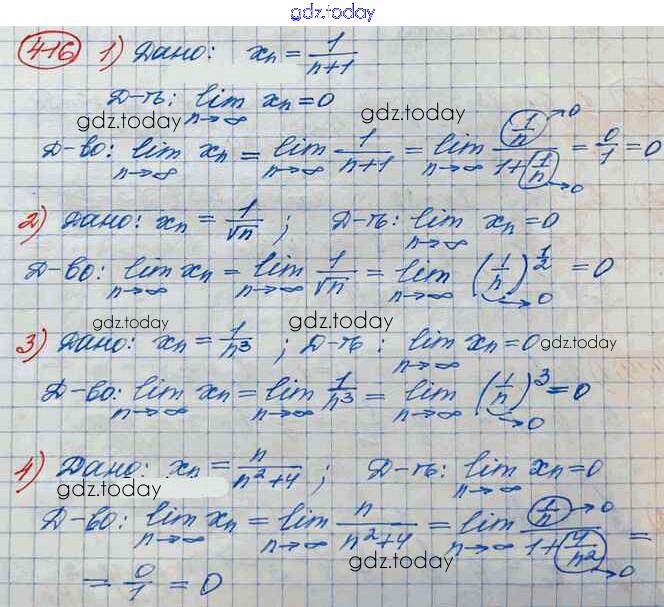 gdz.today
416 1) Дано: xₙ = 1/(n+1)
Д-ть: lim xₙ = 0
n→∞
gdz.today gdz.today
Д-во: lim xₙ = lim 1/(n+1) = lim (1/n)→0 / (1 + (1/n)→0) = 0/1 = 0
n→∞ n→∞ n→∞
2) Дано: xₙ = 1/√n ; Д-ть: lim xₙ = 0
n→∞
Д-во: lim xₙ = lim 1/√n = lim (1/n)^(1/2) = 0
n→∞ n→∞ n→∞ →0
gdz.today gdz.today
3) Дано: xₙ = 1/n³ ; Д-ть: lim xₙ = 0
n→∞ gdz.today
Д-во: lim xₙ = lim 1/n³ = lim (1/n)³ = 0
n→∞ n→∞ n→∞ →0
4) Дано: xₙ = n/(n²+4) ; Д-ть: lim xₙ = 0
n→∞
gdz.today gdz.today
Д-во: lim xₙ = lim n/(n²+4) = lim (1/n)→0 / (1 + (4/n²)→0) =
n→∞ n→∞ n→∞
gdz.today
= 0/1 = 0